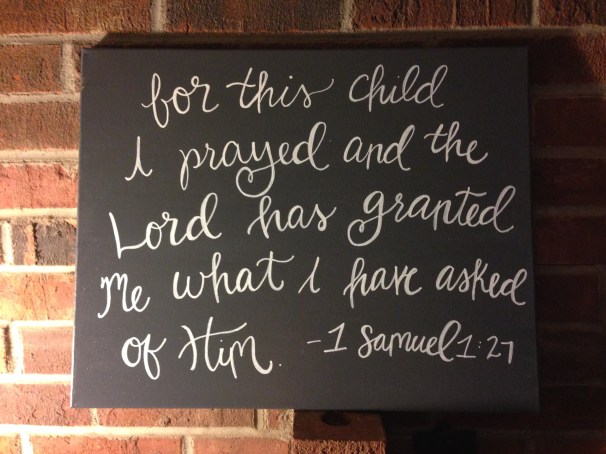 for this child
I prayed and the
Lord has granted
Me what I have asked
of Him. -1 Samuel 1:27